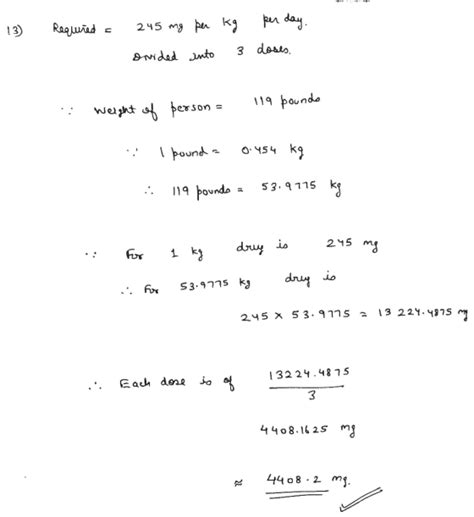 13) Required = 245 mg per kg per day.
Divided into 3 doses.
∵ Weight of person = 119 pounds
∵ 1 pound = 0.454 kg
∴ 119 pounds = 53.9775 kg
∵ For 1 kg drug is 245 mg
∴ For 53.9775 kg drug is
245 × 53.9775 = 13224.4875 mg
∴ Each dose is of 13224.4875
3
4408.1625 mg
≈ 4408.2 mg.